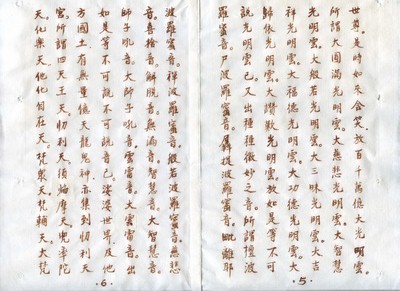 世尊。是時如來含笑。放百千萬億大光明雲。
所謂大圓滿光明雲。大慈悲光明雲。大智慧
光明雲。大般若光明雲。大三昧光明雲。大吉
祥光明雲。大福德光明雲。大功德光明雲。大
歸依光明雲。大讚歎光明雲。放如是等不可
說光明雲已。又出種種微妙之音。所謂檀波
羅蜜音。尸波羅蜜音。羼提波羅蜜音。毗離耶
·5·
波羅蜜音。禪波羅蜜音。般若波羅蜜音。慈悲
音。喜捨音。解脫音。無漏音。智慧音。大智慧音。
師子吼音。大師子吼音。雲雷音。大雲雷音。出
如是等不可說不可說音已。娑婆世界。及他
方國土。有無量億天龍鬼神。亦集到忉利天
宮。所謂四天王天。忉利天。須燄摩天。兜率陀
天。化樂天。他化自在天。梵眾天。梵輔天。大梵
·6·